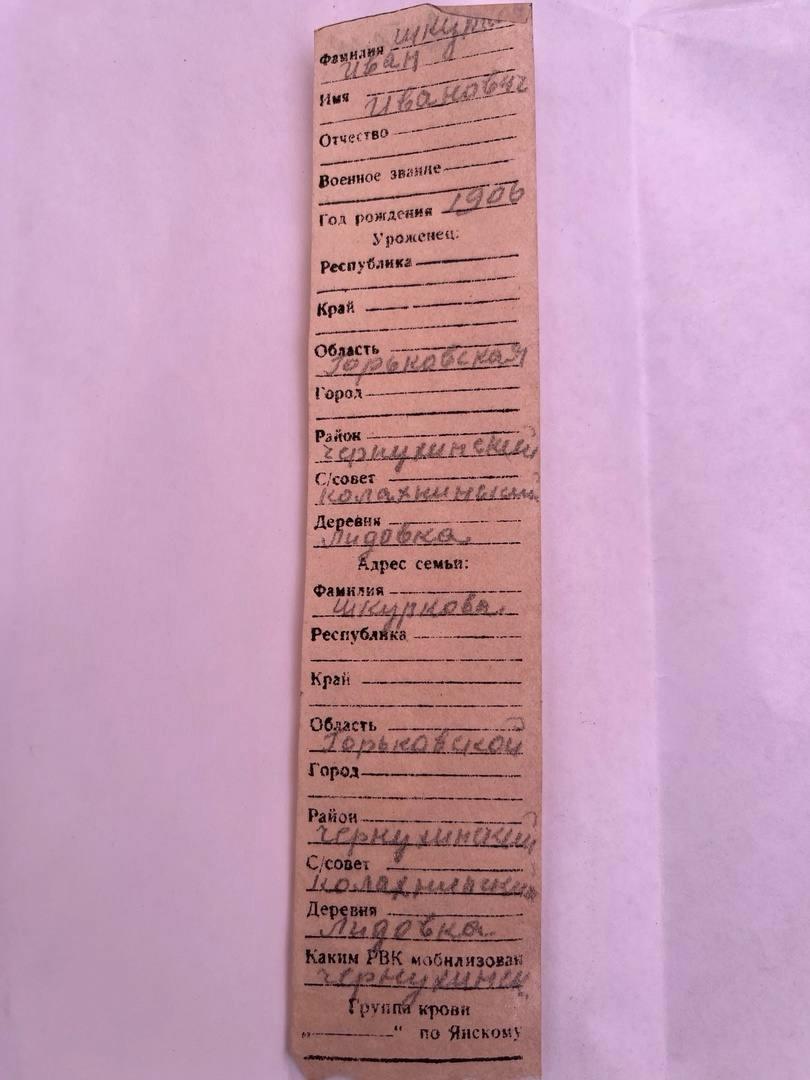 Фамилия
Иван
Имя
Иванович
Отчество
Военное звание
Год рождения 1906
Уроженец:
Республика
Край
Область
Горьковская
Город
Район
Чернухинский
С/совет
Деревня
Лидовка
Адрес семьи:
Фамилия
Шкуркова
Республика
Край
Область
Горьковской
Город
Район
Чернухинский
С/совет
Деревня
Лидовка
Каким РВК мобилизован
Чернухинск
Группа крови
„ “ по Янскому